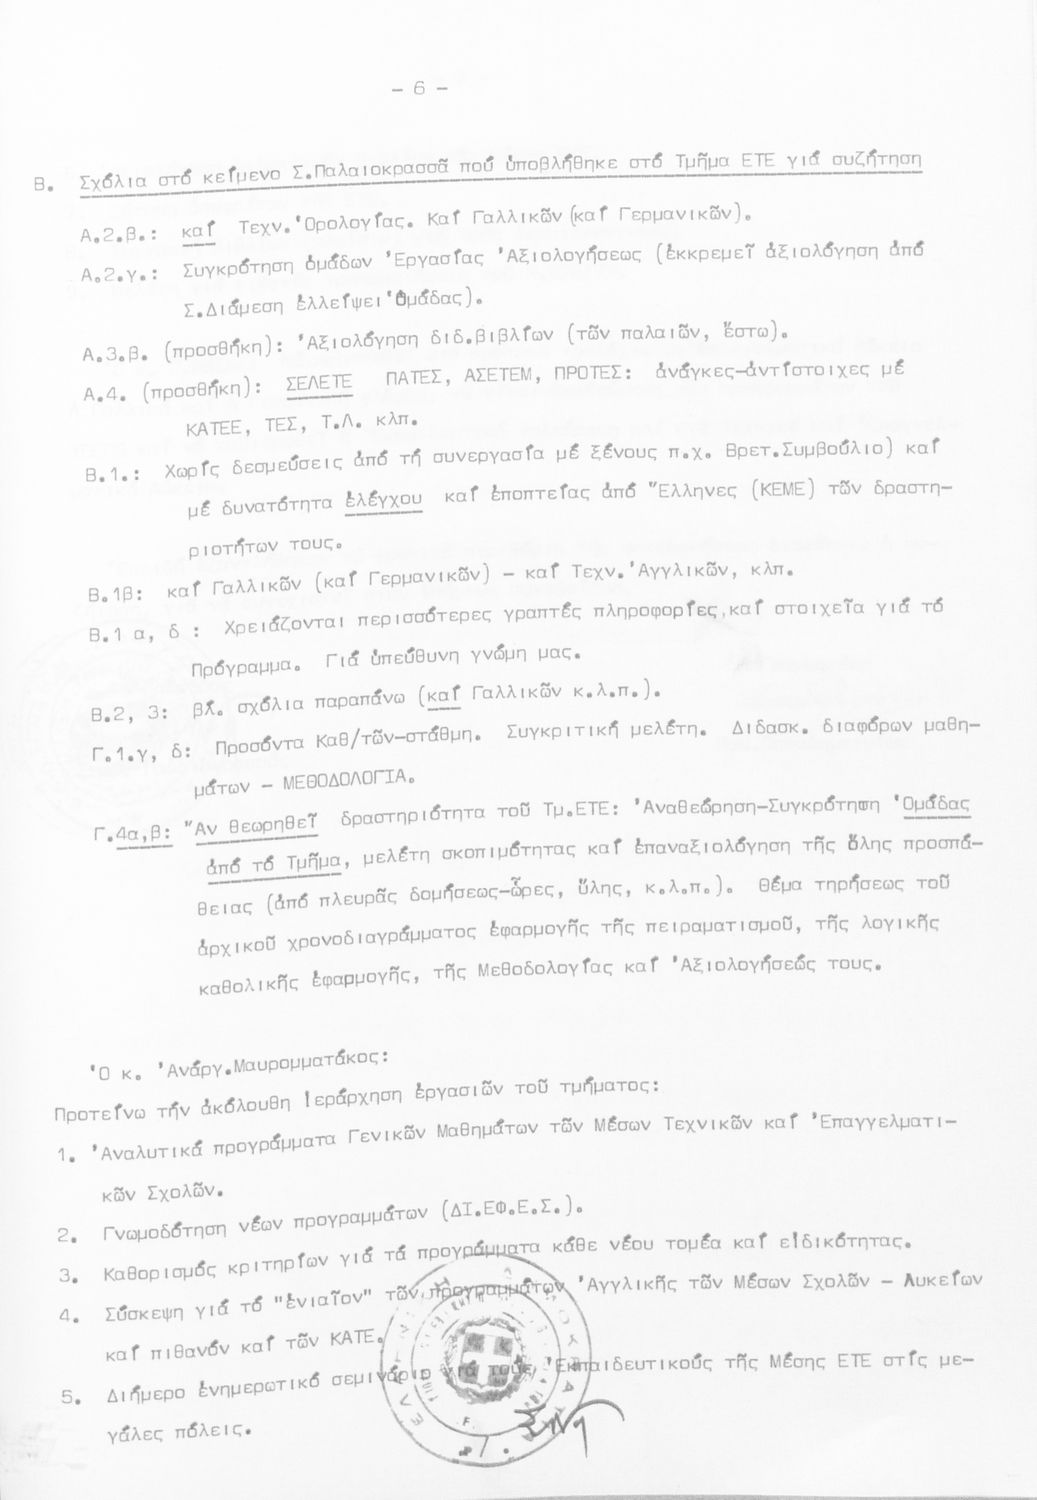 - 6 -
Β. Σχόλια στό κείμενο Σ.Παλαιοκρασσᾶ πού ὑποβλήθηκε στό Τμῆμα ΕΤΕ γιά συζήτηση
Α.2.β.: καί Τεχν.Ὁρολογίας. Καί Γαλλικῶν (καί Γερμανικῶν).
Α.2.γ.: Συγκρότηση ὁμάδων Ἐργασίας Ἀξιολογήσεως (ἐκκρεμεῖ ἀξιολόγηση ἀπό
Σ.Διάμεση ἐλλείψει Ὁμάδας).
Α.3.β. (προσθήκη): Ἀξιολόγηση διδ.βιβλίων (τῶν παλαιῶν, ἔστω).
Α.4. (προσθήκη): ΣΕΛΕΤΕ ΠΑΤΕΣ, ΑΣΕΤΕΜ, ΠΡΟΤΕΣ: ἀνάγκες-ἀντίστοιχες μέ
ΚΑΤΕΕ, ΤΕΣ, Τ.Λ. κλπ.
Β.1.: Χωρίς δεσμεύσεις ἀπό τή συνεργασία μέ ξένους π.χ. Βρετ.Συμβούλιο) καί
μέ δυνατότητα ἐλέγχου καί ἐποπτείας ἀπό Ἕλληνες (ΚΕΜΕ) τῶν δραστη-
ριοτήτων τους.
Β.1β: καί Γαλλικῶν (καί Γερμανικῶν) - καί Τεχν.Ἀγγλικῶν, κλπ.
Β.1 α, δ : Χρειάζονται περισσότερες γραπτές πληροφορίες,καί στοιχεῖα γιά τό
Πρόγραμμα. Γιά ὑπεύθυνη γνώμη μας.
Β.2, 3: βλ. σχόλια παραπάνω (καί Γαλλικῶν κ.λ.π.).
Γ.1.γ, δ: Προσόντα Καθ/τῶν-στάθμη. Συγκριτική μελέτη. Διδασκ. διαφόρων μαθη-
μάτων - ΜΕΘΟΔΟΛΟΓΙΑ.
Γ.4α,β: Ἄν θεωρηθεῖ δραστηριότητα τοῦ Τμ.ΕΤΕ: Ἀναθεώρηση-Συγκρότηση Ὁμάδας
ἀπό τό Τμῆμα, μελέτη σκοπιμότητας καί ἐπαναξιολόγηση τῆς ὅλης προσπά-
θειας (ἀπό πλευρᾶς δομήσεως-ὧρες, ὕλης, κ.λ.π.). Θέμα τηρήσεως τοῦ
ἀρχικοῦ χρονοδιαγράμματος ἐφαρμογῆς τῆς πειραματισμοῦ, τῆς λογικῆς
καθολικῆς ἐφαρμογῆς, τῆς Μεθοδολογίας καί Ἀξιολογήσεώς τους.
Ὁ κ. Ἀνάργ.Μαυρομματάκος:
Προτείνω τήν ἀκόλουθη ἱεράρχηση ἐργασιῶν τοῦ τμήματος:
1. Ἀναλυτικά προγράμματα Γενικῶν Μαθημάτων τῶν Μέσων Τεχνικῶν καί Ἐπαγγελματι-
κῶν Σχολῶν.
2. Γνωμοδότηση νέων προγραμμάτων (ΔΙ.ΕΦ.Ε.Σ.).
3. Καθορισμός κριτηρίων γιά τά προγράμματα κάθε νέου τομέα καί εἰδικότητας.
4. Σύσκεψη γιά τό "ἑνιαῖον" τῶν προγραμμάτων Ἀγγλικῆς τῶν Μέσων Σχολῶν - Λυκείων
καί πιθανόν καί τῶν ΚΑΤΕ.
5. Διήμερο ἐνημερωτικό σεμινάριο γιά τούς Ἐκπαιδευτικούς τῆς Μέσης ΕΤΕ στίς με-
γάλες πόλεις.